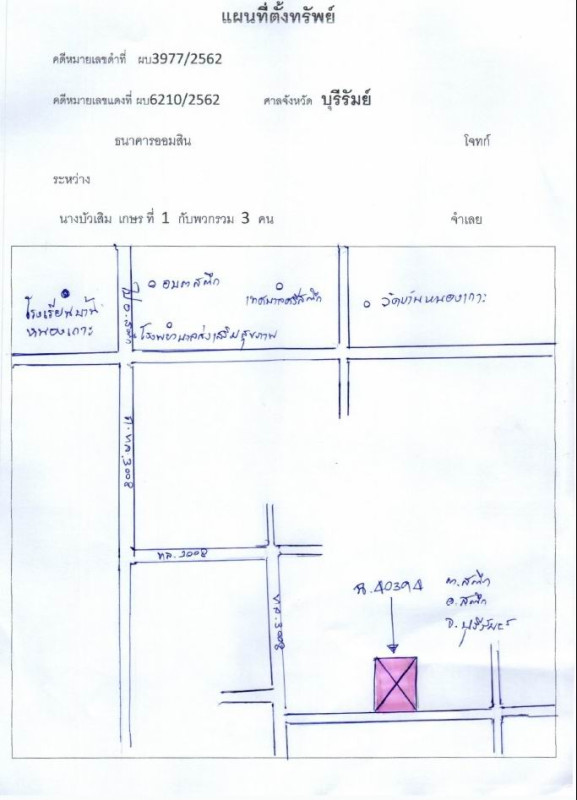 แผนที่ตั้งทรัพย์
คดีหมายเลขดำที่ ผบ3977/2562
คดีหมายเลขแดงที่ ผบ6210/2562 ศาลจังหวัด บุรีรัมย์
ธนาคารออมสิน โจทก์
ระหว่าง
นางบัวเสิม เกษร ที่ 1 กับพวกรวม 3 คน จำเลย
โรงเรียนบ้าน
หนองเกาะ
อบต สตึก
เทศบาลศรีสตึก
วัดบ้านหนองเกาะ
โรงพยาบาลส่งเสริมสุขภาพ
ถ.ทล.3008
ทล.3008
ทล.3008
ฉ.40394
ต.สตึก
อ.สตึก
จ.บุรีรัมย์